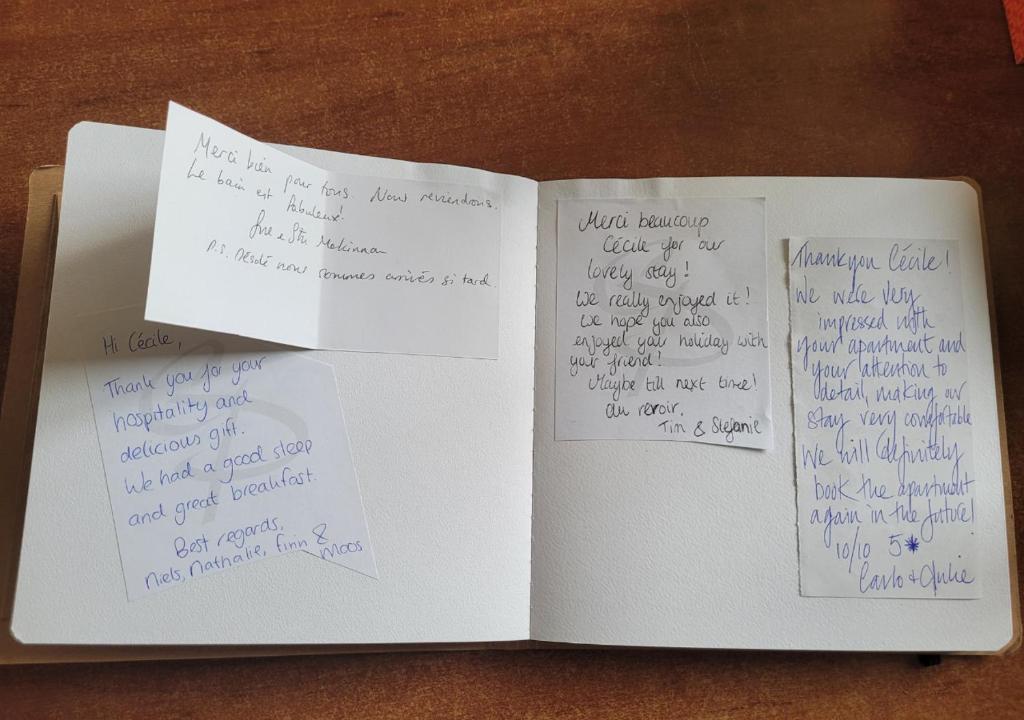 Merci bien pour tous. Nous reviendrons.
Le bain est fabuleux!
Sue & Stu Mckinnan
P.S. Désolé nous sommes arrivés si tard.
Hi Cécile,
Thank you for your
hospitality and
delicious gift.
We had a good sleep
and great breakfast.
Best regards,
Niels, Nathalie, Finn &
Moos
Merci beaucoup
Cécile for our
lovely stay!
We really enjoyed it!
We hope you also
enjoyed your holiday with
your friend!
Maybe till next time!
au revoir,
Tim & Stefanie
Thankyou Cécile!
We were very
impressed with
your apartment and
your attention to
detail, making our
stay very comfortable
We will definitely
book the apartment
again in the future!
10/10 5*
Carlo + Julie